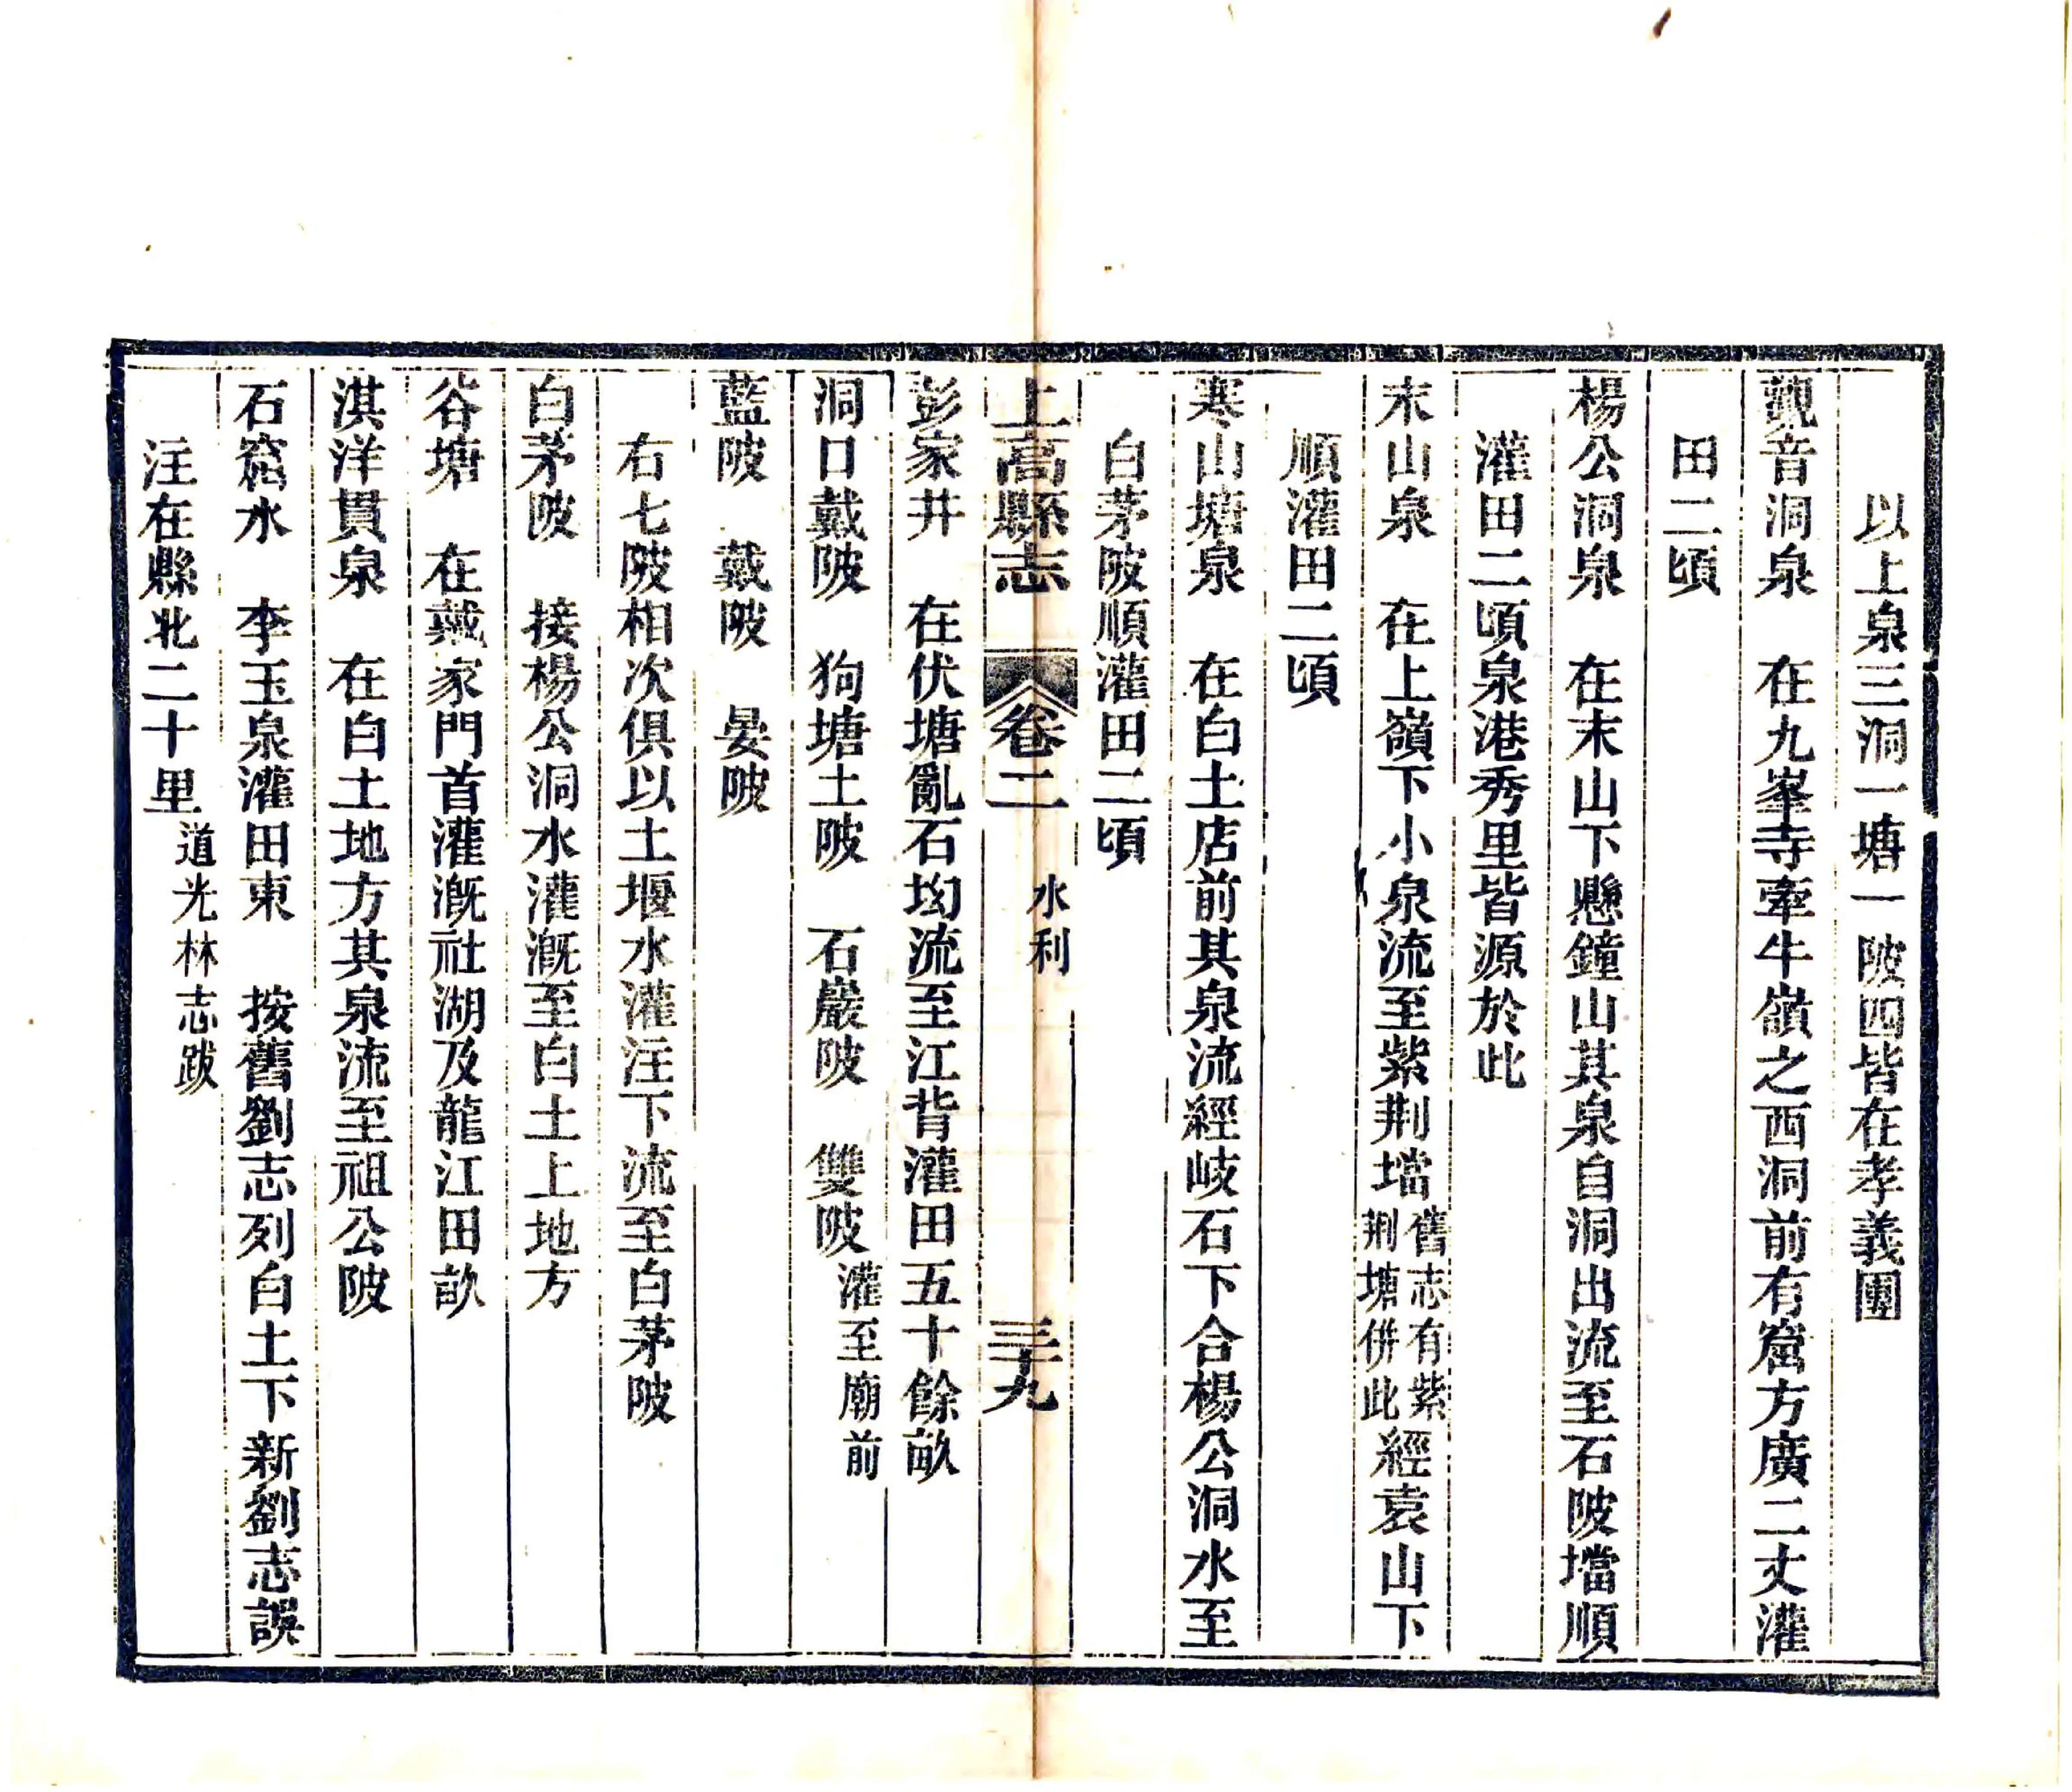 以上泉三洞一塘一陂四皆在孝義團
觀音洞泉　在九峯寺牽牛嶺之西洞前有窟方廣二丈灌
田二頃
楊公洞泉　在末山下懸鐘山其泉自洞出流至石陂壋順
灌田二頃泉港秀里皆源於此
末山泉　在上嶺下小泉流至紫荆壋舊志有紫荆塘併此經袁山下
順灌田二頃
寒山塘泉　在白土店前其泉流經岐石下合楊公洞水至
白茅陂順灌田二頃
上高縣志　卷二　水利　三十九
彭家井　在伏塘亂石坳流至江背灌田五十餘畝
洞口戴陂　狗塘土陂　石巖陂　雙陂灌至廟前
藍陂　戴陂　晏陂
右七陂相次俱以土堰水灌注下流至白茅陂
白茅陂　接楊公洞水灌漑至白土上地方
谷塘　在戴家門首灌漑社湖及龍江田畝
淇洋貫泉　在白土地方其泉流至祖公陂
石窟水　李玉泉灌田東　按舊劉志列白土下新劉志誤
注在縣北二十里道光林志跋